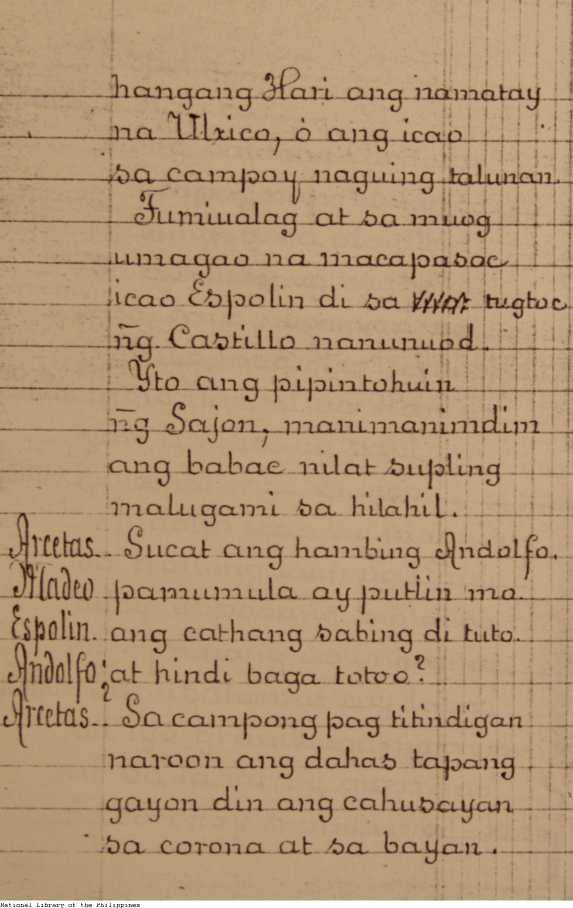 hangang Hari ang namatay
na Ulrico, ó ang icao
sa campoy naguing talunan.
Fumiualag at sa muog
umagao na macapasoc
icao Espolin di sa tugtoc
n̄g Castillo nanunuod.
Yto ang pipintohuin
n̄g Sajon, manimanimdim
ang babae nilat supling
malugami sa hilahil.
Arcetas.. Sucat ang hambing Andolfo.
Madeo pamumula ay putlin mo.
Espolin. ang cathang sabing di tuto.
Andolfo: at hindi baga totoo?
Arcetas.. Sa campong pag titindigan
naroon ang dahas tapang
gayon din ang cahusayan
sa corona at sa bayan.
National Library of the Philippines